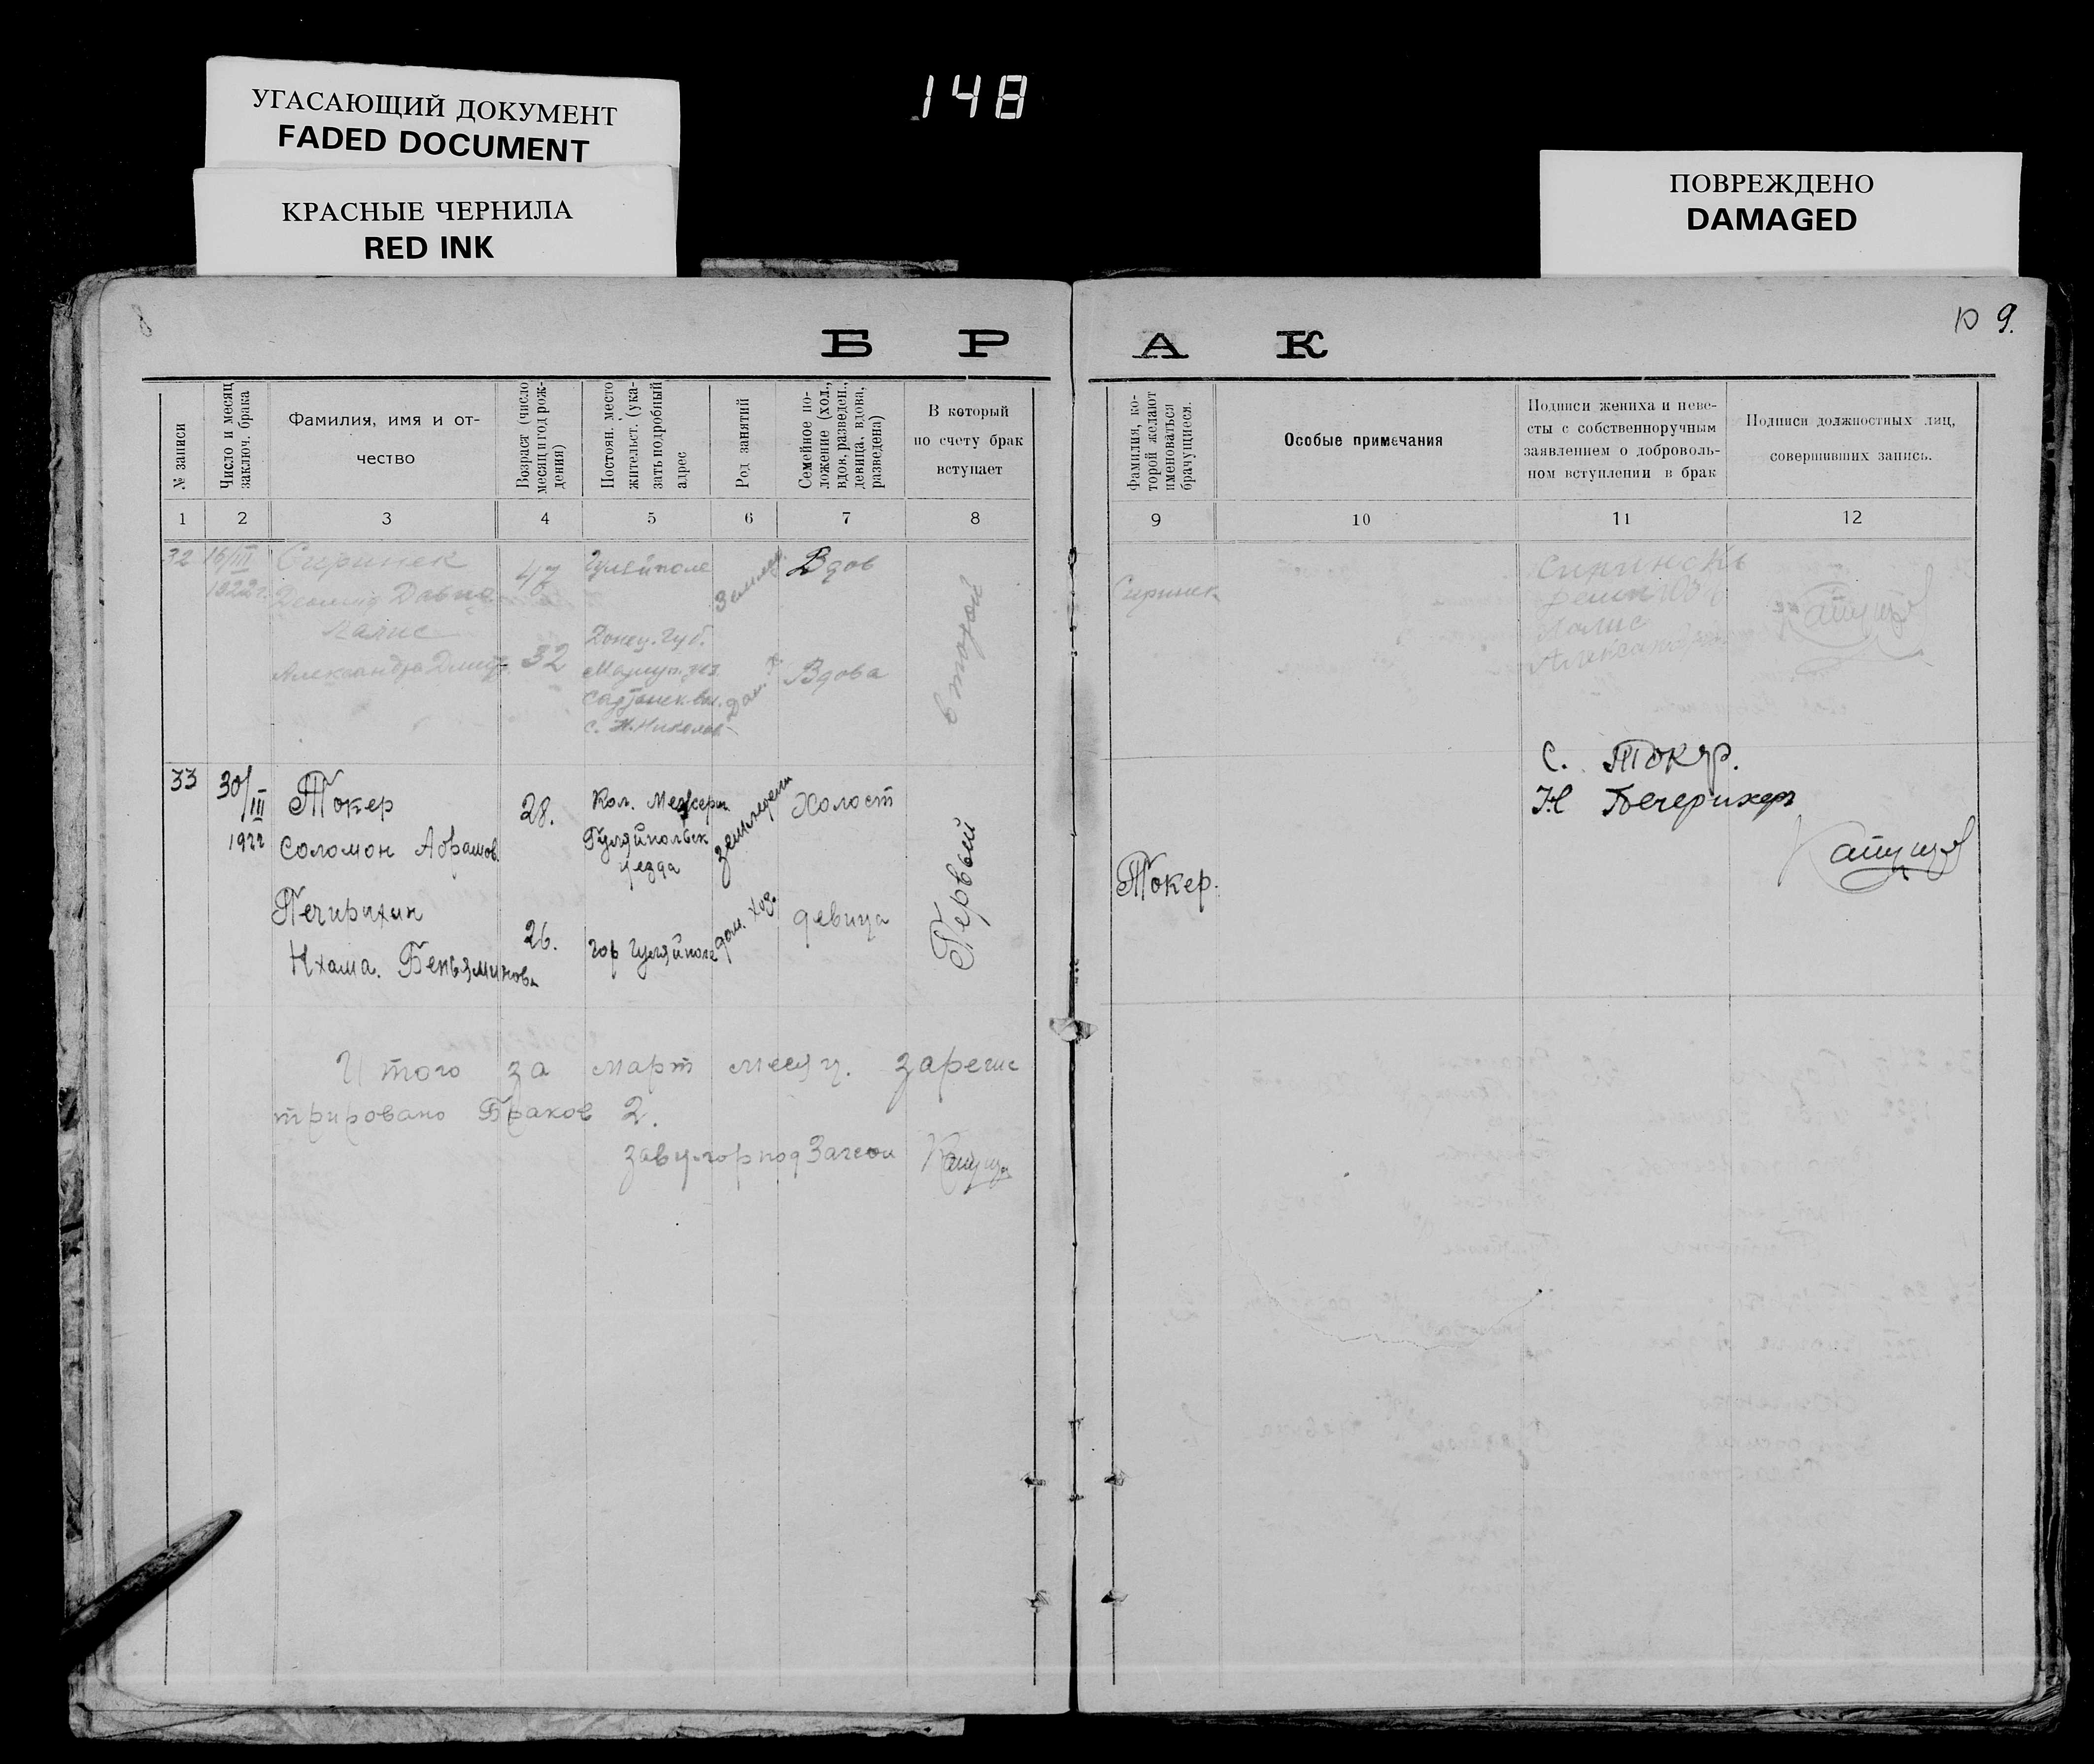 УГАСАЮЩИЙ ДОКУМЕНТ
FADED DOCUMENT
КРАСНЫЕ ЧЕРНИЛА
RED INK
148
ПОВРЕЖДЕНО
DAMAGED
8
9.
Б Р А К
№ записи
Число и месяц
заключ. брака
Фамилия, имя и от-
чество
Возраст (число
месяц и год рож-
дения)
Постоян. место
жительст. (ука-
зать подробный
адрес
Род занятий
Семейное по-
ложение (хол.,
вдов, разведен.,
девица, вдова,
разведена)
В который
по счету брак
вступает
Фамилия, ко-
торой желают
именоваться
брачущиеся.
Особые примечания
Подписи жениха и неве-
сты с собственноручным
заявлением о доброволь-
ном вступлении в брак
Подписи должностных лиц,
совершивших запись.
1 2 3 4 5 6 7 8 9 10 11 12
32
16/III
1922 г.
Сиринек
Александра
47
32
Гуляйполе
Донец. Губ.
Вдов
Вдова
второй
Сиринек
Александра
33
30/III
1922
Токер
Соломон Абрамов.
Печирихин
Нхама. Беньяминова
28.
26.
Гуляйпольск
уезда
гор Гуляйполе
дом. хоз.
Холост
девица
Первый
Токер.
С. Токер.
Н Печерихер
Итого за март месяц. зареги
стрировано Браков 2.